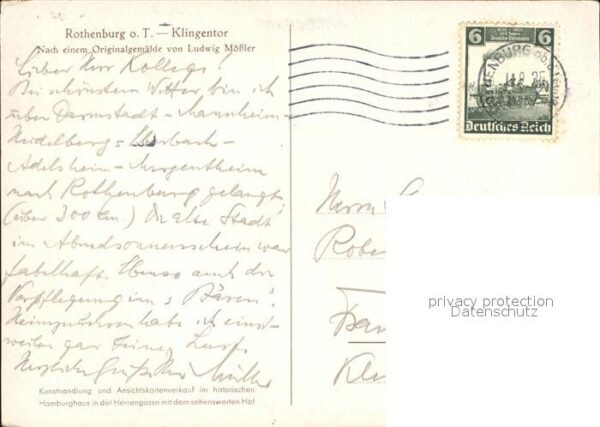 Rothenburg o. T. — Klingentor
Nach einem Originalgemälde von Ludwig Mößler
Lieber Herr Kollege!
Bei schönstem Wetter bin ich
über Darmstadt - Mannheim
Heidelberg - Eberbach -
Adelsheim - Mergentheim
nach Rothenburg gelangt
(über 300 km.) Die alte Stadt
im Abendsonnenschein war
fabelhaft. Ebenso auch die
Verpflegung im "Bären".
Heimzufahren habe ich einst-
weilen gar keine Lust.
Herzliche Grüße Ihr Müller
Kunsthandlung und Ansichtskartenverkauf im historischen
Hamburghaus in der Herrengasse mit dem sehenswerten Hof
6 6
Deutsches Reich
Herrn
privacy protection
Datenschutz